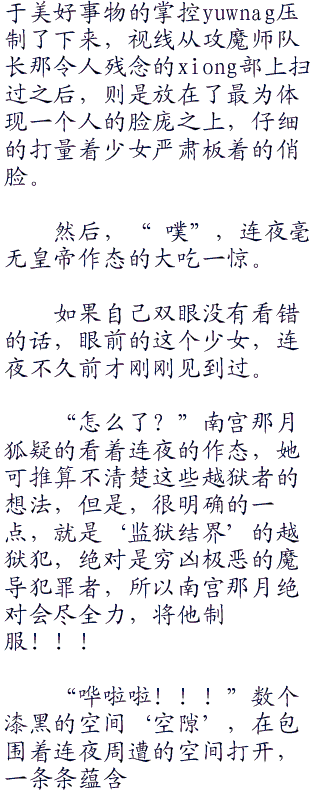 于美好事物的掌控yuwnag压
制了下来，视线从攻魔师队
长那令人残念的xiong部上扫
过之后，则是放在了最为体
现一个人的脸庞之上，仔细
的打量着少女严肃板着的俏
脸。
然后，“ 噗”，连夜毫
无皇帝作态的大吃一惊。
如果自己双眼没有看错
的话，眼前的这个少女，连
夜不久前才刚刚见到过。
“怎么了？”南宫那月
狐疑的看着连夜的作态，她
可推算不清楚这些越狱者的
想法，但是，很明确的一
点，就是‘监狱结界’的越
狱犯，绝对是穷凶极恶的魔
导犯罪者，所以南宫那月绝
对会尽全力，将他制
服！！！
“哗啦啦！！！”数个
漆黑的空间‘空隙’，在包
围着连夜周遭的空间打开，
一条条蕴含